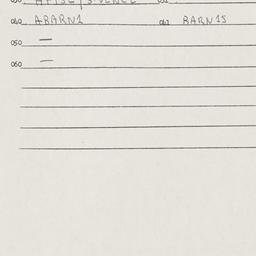 040 ABARN1 041 BARN1S
050 —
060 —